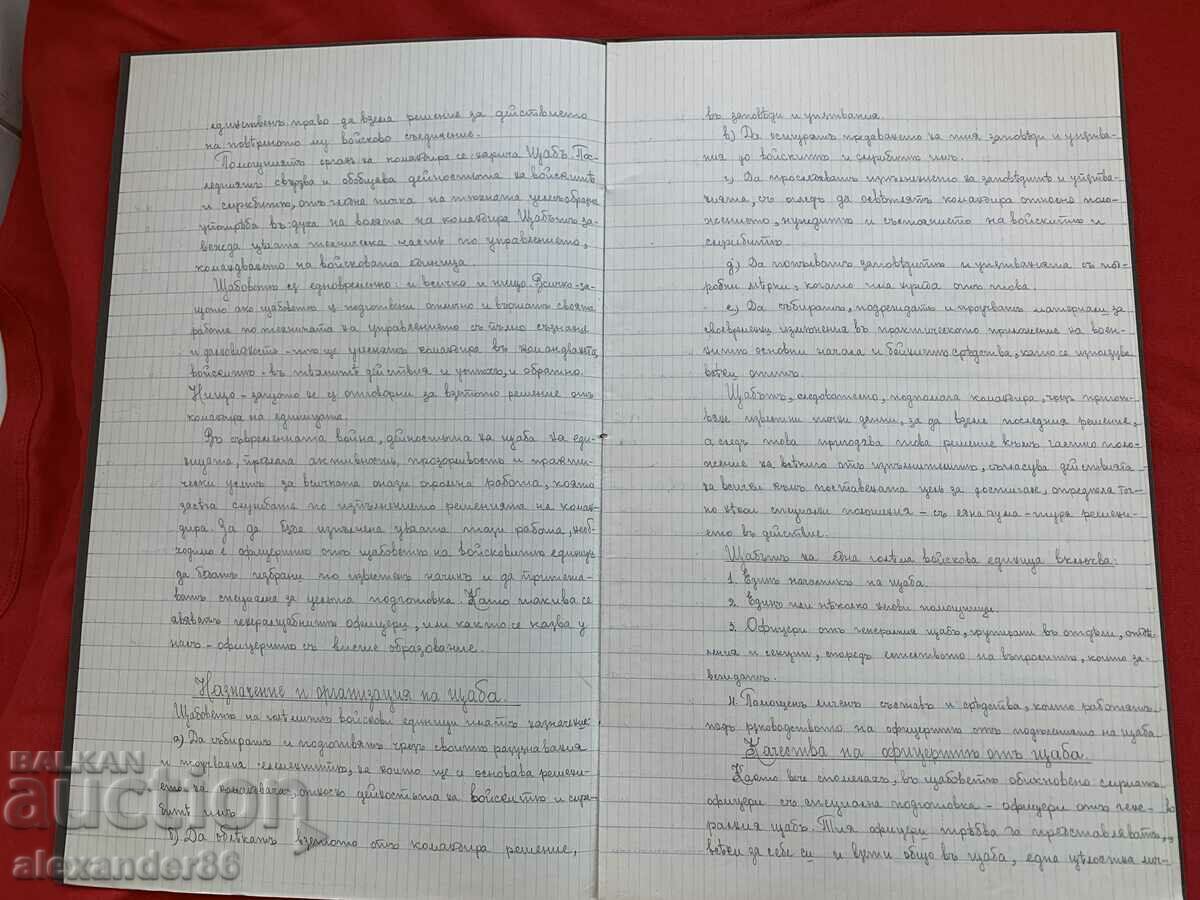 единственъ право да взема решение за действието
на повѣреното му войсково съединение.
Помощниятъ органъ на командира се нарича Щабъ. По-
следниятъ свързва и обобщава дейностьта на войскитѣ
и службитѣ, отъ гледна точка на тѣхната целесъобразна
употрѣба въ духа на волята на командира. Щабътъ за-
вежда цѣлата техническа часть по управлението,
командването на войсковата единица
Щабоветѣ сѫ едновременно: и всичко и нищо. Всичко - за-
щото ако щабоветѣ сѫ подготвени отлично и вършатъ своята
работа по техниката на управлението съ пълно съзнание
и далновидность - то ще улеснятъ командира въ командването
войскитѣ - въ тѣхнитѣ действия и успѣхъ, и обратно.
Нищо - защото не сѫ отговорни за взетото решение отъ
командира на единицата.
Въ съвременната война, дейностьта на щаба на еди-
ницата, проявява активность, прозорливость и практи-
чески усетъ за всичката онази огромна работа, която
засѣга службата по изпълнението решенията на коман-
дира. За да бѫде изпълнена цѣлата тази работа, необ-
ходимо е офицеритѣ отъ щабоветѣ на войсковитѣ единици
да бѫдатъ избрани по известенъ начинъ и да притежа-
ватъ специална за цельта подготовка. Като такива се
явяватъ генералщабнитѣ офицери, или както се казва у
насъ - офицеритѣ съ висше образование.
Назначение и организация на щаба.
Щабоветѣ на голѣмитѣ войскови единици иматъ назначение:
а) Да събиратъ и подготвятъ чрезъ своитѣ разузнавания
и проучвания елементитѣ, на които ще се основава решени-
ето на командвача, относно дейностьта на войскитѣ и служ-
битѣ имъ.
б) Да облѣкатъ взетото отъ командира решение,
въ заповѣди и упѫтвания.
в) Да осигурятъ предаването на тия заповѣди и упѫтва-
ния до войскитѣ и службитѣ имъ.
г) Да проследяватъ изпълнението на заповѣдитѣ и упѫтва-
нията, съ огледъ да осветлятъ командира относно поло-
жението, нуждитѣ и състоянието на войскитѣ и
службитѣ.
д) Да допълватъ заповѣдитѣ и упѫтванията съ под-
робни мѣрки, когато има нужда отъ това.
е) Да събиратъ, подреждатъ и проучватъ материали за
своевременни изменения въ практическото приложение на воен-
нитѣ основни начала и бойнитѣ срѣдства, като се използува
всѣки опитъ.
Щабътъ, следователно, подпомага командира, чрезъ пригот-
вяне известни точни данни, за да вземе последния решение,
а следъ това приподава това решение къмъ частно поло-
жение на всѣкиго отъ изпълнителитѣ, съгласува действията -
на всички къмъ поставената цель за достигане, определя точ-
но нѣкои специални положения - съ една дума - туря решени-
ето въ действие.
Щабътъ на една голѣма войскова единица включва:
1. Единъ началникъ на щаба.
2. Единъ или нѣколко негови помощници.
3. Офицери отъ генералния щабъ, групирани въ отдѣли, отдѣле-
ния и секции, споредъ естеството на въпроситѣ, които за-
веждатъ.
4. Помощенъ личенъ съставъ и срѣдства, които работятъ
подъ рѫководството на офицеритѣ отъ поделенията на щаба.
Качества на офицеритѣ отъ щаба.
Както вече споменахъ, въ щабоветѣ обикновено служатъ
офицери съ специална подготовка - офицери отъ гене-
ралния щабъ. Тия офицери трѣбва да представляватъ,
всѣки за себе си и вкупо общо въ щаба, една цѣлостна лич-
BALKAN
auction
alexander86